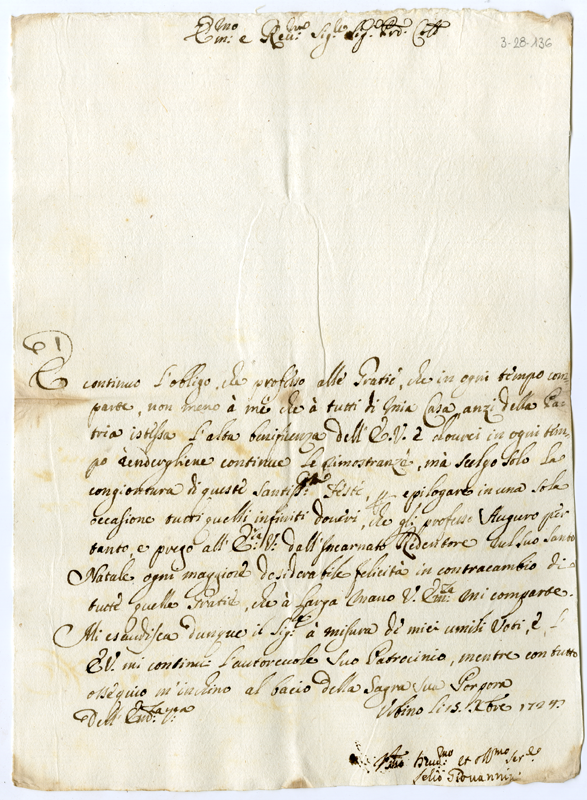 Em.mo e Rev.mo Sig.re Sig.re Prd. Coll
3-28-136
61
E continuo l'obligo, che professo alle Gratie, che in ogni tempo com-
parte, non meno à me che à tutti di mia Casa, anzi della Pa-
tria istessa l'alta beneficenza dell'E.V. è dovrei in ogni tem-
pò rendergliene continue le dimostranze, mà scelgo solo la
congiontura di queste Santiss.e Feste, epilogare in una sola
occasione tutti quelli infiniti doveri, che gli professo Auguro per
tanto, e prego all'E.V. dall'Incarnato Redentore nel suo Santo
Natale ogni maggiore desiderabile felicità in contracambio di
tutte quelle Gratie, che à larga mano V. Em.za mi comparte.
Mi esaudisca dunque il Sig.re à misura de miei umili Voti, è l'
E.V. mi continui l'autorevole suo Patrocinio, mentre con tutto
ossequio m'inchino al bacio della Sagra sua Porpora
Dell'Em.za V.ra Urbino li 15. Xbre
et Obl.mo Ser.e
Giovannini